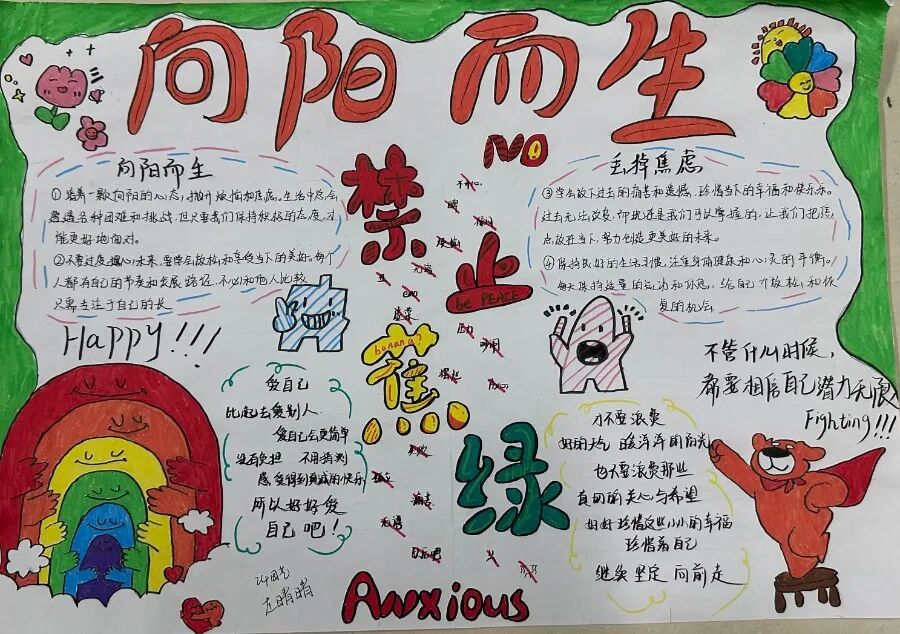 向阳而生
向阳而生
①培养一颗向阳的心态，抛开烦恼和焦虑。生活中总会
遭遇各种困难和挑战，但只要我们保持积极的态度，才
能更好地面对。
②不要过度担心未来，要学会放松和享受当下的美好。每个
人都有自己的节奏和发展路径，不必和他人比较
只需专注于自己的长
Happy!!!
NO
禁
止
be PEACE
蕉
banana?
绿
Anxious
丢掉焦虑
③学会放下过去的痛苦和遗憾，珍惜当下的幸福和快乐。
过去无法改变，但现在是我们可以掌握的，让我们把焦
点放在当下，努力创造更美好的未来。
④保持良好的生活习惯，注重身体健康和心灵的平衡。
每天保持适量的运动和休息，给自己个放松和恢
复的机会
不管什么时候，
都要相信自己潜力无限
Fighting!!!
爱自己
比起去爱别人
爱自己会更简单
没有负担 不用猜测
感觉得到真诚的快乐
所以好好爱
自己吧！
才不要浪费
好的天气 暖洋洋的阳光
也不要浪费那些
真切的关心与希望
好好珍惜这些小小的幸福
珍惜着自己
继续坚定向前走